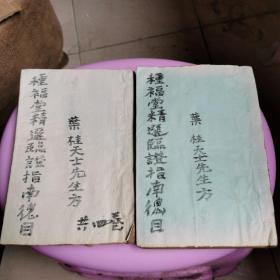 種福堂精選臨證指南總目
葉桂天士先生方
共四卷
種福堂精選臨證指南總目
葉桂天士先生方